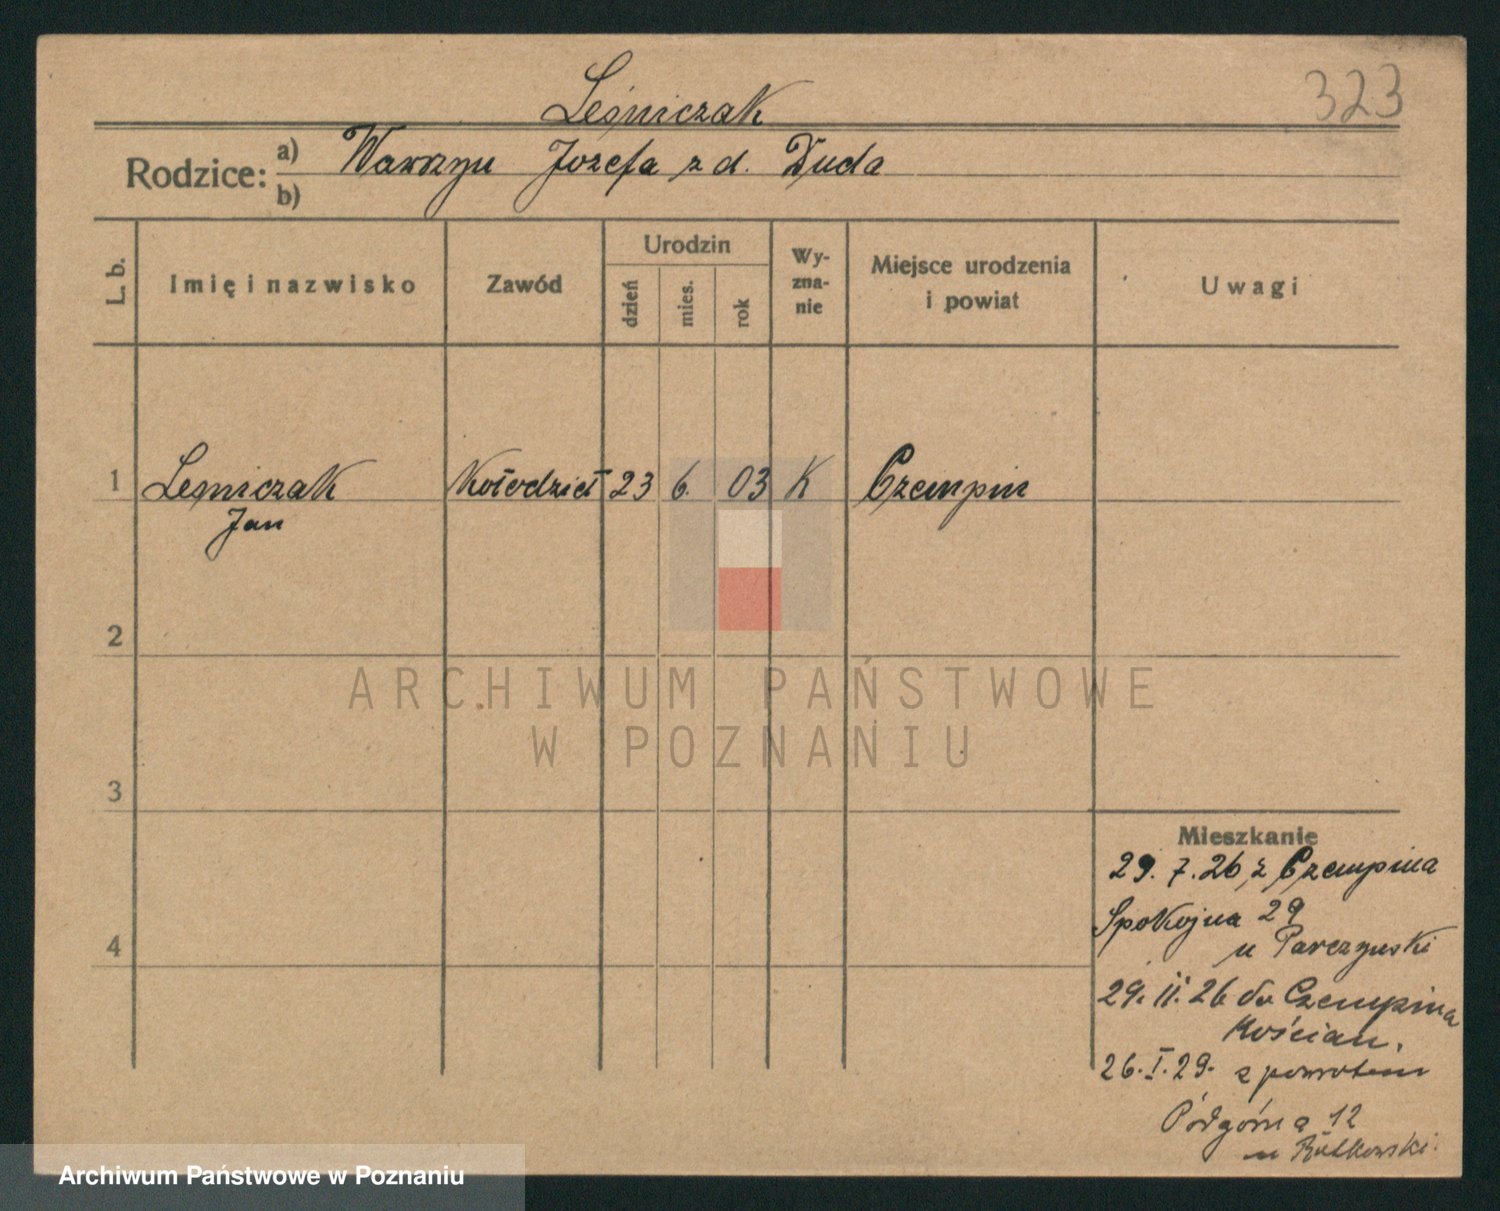 323
Leśniczak
Rodzice: a) Wawrzyn Jozefa z d. Duda
b)
L. b.
Imię i nazwisko
Zawód
Urodzin
dzień
mies.
rok
Wy-
zna-
nie
Miejsce urodzenia
i powiat
Uwagi
1 Leśniczak Kołodziej 23 6. 03 K Czempin
Jan
2
ARCHIWUM PAŃSTWOWE
W POZNANIU
3
Mieszkanie
29. 7. 26 z Czempina
Spokojna 29
u Parczynski
4
29. 11. 26 do Czempina
Kościan.
26. I. 29. z powrotem
Podgórna 12
u Rutkowski.
Archiwum Państwowe w Poznaniu